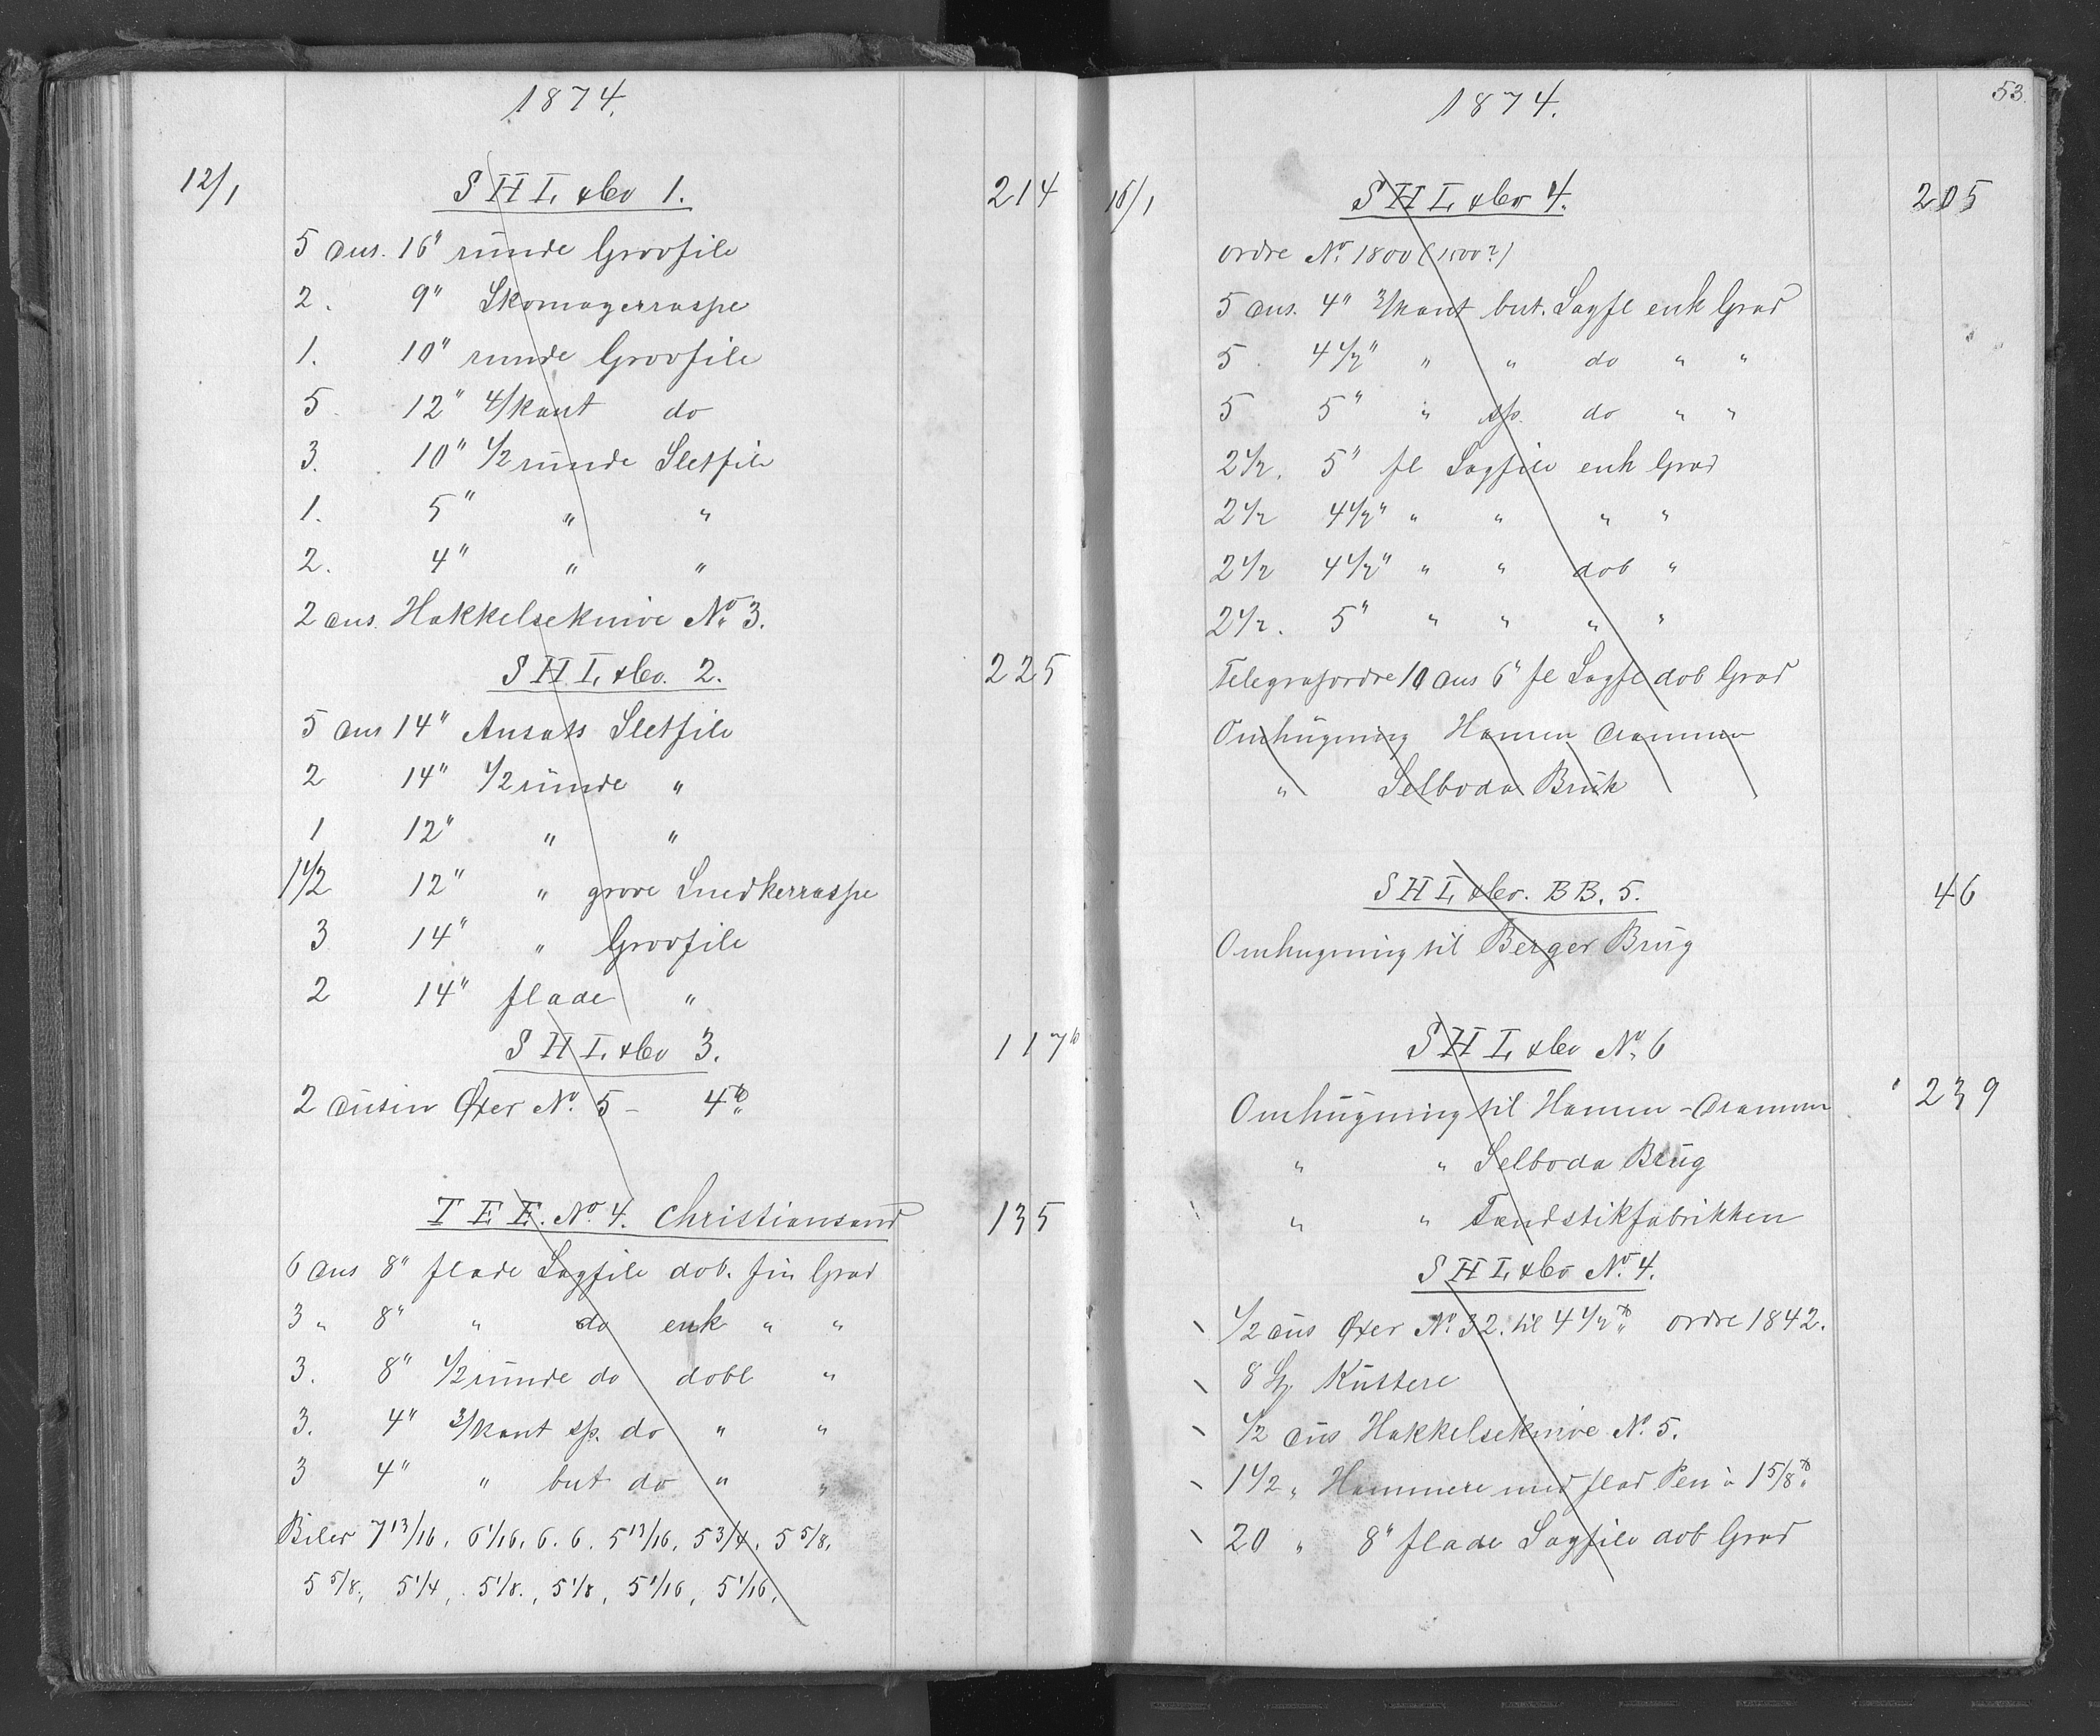 1874.
12/1 S H L & Co 1. 214
5 dus. 16" runde Grovfile
2. 9" Skomagerraspe
1. 10" runde Grovfile
5. 12" 4/kant do
3. 10" 1/2 runde Sletfile
1. 5" " "
2. 4" " "
2 dus. Hakkelseknive No 3.
S H L & Co. 2. 225
5 dus 14" Ansats Sletfile
2 14" 1/2 runde "
1 12" " "
1 1/2 12" " grove Snedkerraspe
3 14" " Grovfile
2 14" flade "
S H L & Co 3. 117
2 dusin Øxer No. 5 - 4 ℔
T E E. No. 4. Christiansand 135
6 dus 8" flade Sagfile dob. fin Grad
3 " 8" " do enk " "
3. 8" 1/2 runde do dobl "
3. 4" 3/kant sp. do " "
3 4" " but do " "
Biler 7 13/16, 6 1/16, 6. 6. 5 13/16, 5 3/4, 5 5/8,
5 5/8, 5 1/4, 5 1/8, 5 1/8, 5 1/16, 5 1/16,
53.
1874.
/1 S H L & Co 4. 205
ordre No. 1800 (1500?)
5 dus. 4" 3/kant but. Sagfl enk Grad
5. 4 1/2" " " do " "
5 5" " sp. do " "
2 1/2. 5" fl Sagfile enk Grad
2 1/2 4 1/2" " " " "
2 1/2 4 1/2" " " dob "
2 1/2. 5" " " " "
Telegrafordre 10 dus 6" fl Sagfl dob Grad
Omhugning Hamen Drammen
" Selboda Bruk
S H L & Co. B B. 5. 46
Omhugning til Berger Brug
S H L & Co No. 6
Omhugning til Hamen - Drammen 239
" " Selboda Brug
" " Tændstikfabrikken
S H L & Co No. 4.
1/2 dus Øxer No. 32. til 4 1/2 ℔ ordre 1842.
8 St. Kuttere
1/2 dus Hakkelseknive No. 5.
1 1/2 " Hammere med flad Pen à 1 5/8 ℔
20 " 8" flade Sagfile dob Grad